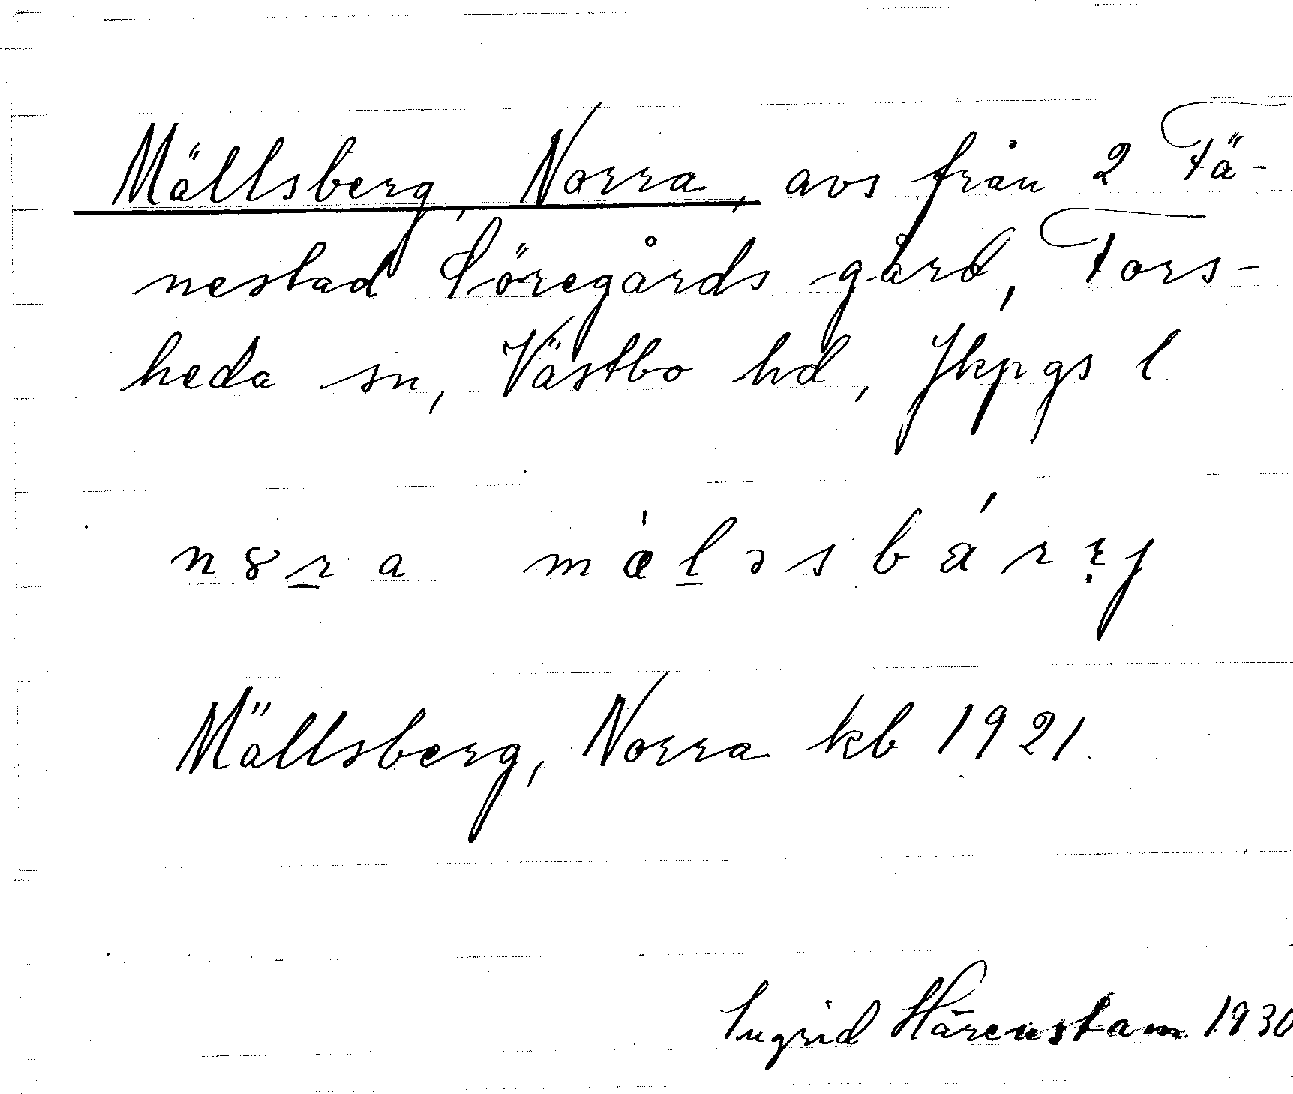 Mällsberg, Norra, avs från 2 Tä-
nestad Söregårds gård, Fors-
heda sn, Västbo hd, Jkpgs l
Mällsberg, Norra kb 1921.
Ingrid Härenstam 1930